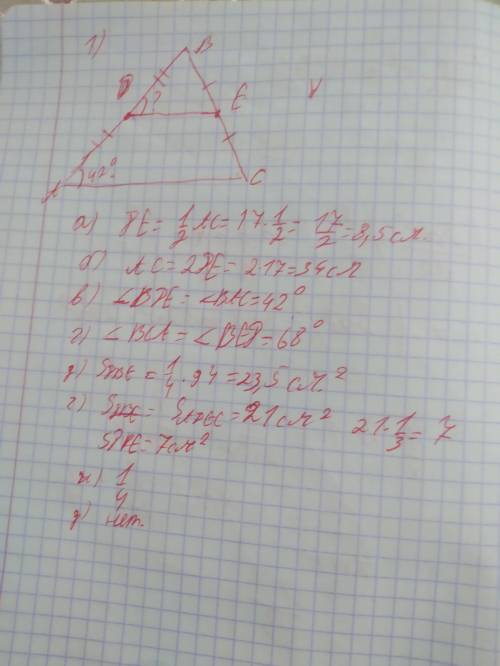 1)
B
D ?
E
A 42° C
а) DE = 1/2 AC = 17 · 1/2 = 17/2 = 8,5 см.
б) AC = 2DE = 2·17 = 34 см
в) ∠BDE = ∠BAC = 42°
г) ∠BCA = ∠BED = 68°
д) SDBE = 1/4 · 94 = 23,5 см²
SADEC = 21 см² 21 · 1/3 = 7
SDBE = 7 см²
ж) 1/4
нет.